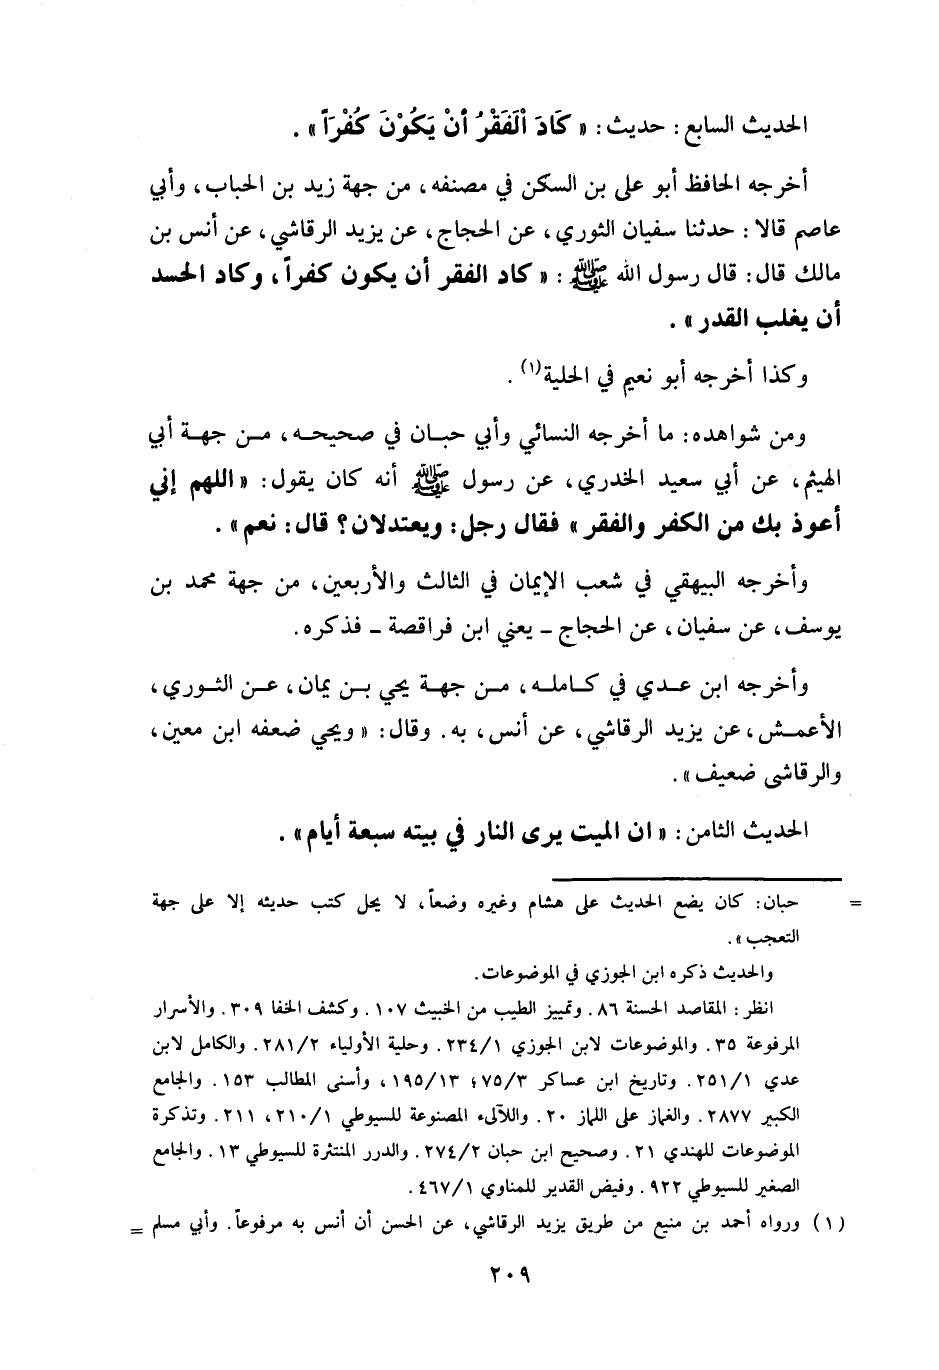 الحديث السابع: حديث: « كَادَ الْفَقْرُ أنْ يَكُوْنَ كُفْرَاً ».
أخرجه الحافظ أبو على بن السكن في مصنفه، من جهة زيد بن الحباب، وأبي
عاصم قالا: حدثنا سفيان الثوري، عن الحجاج، عن يزيد الرقاشي، عن أنس بن
مالك قال: قال رسول الله ﷺ: « كاد الفقر أن يكون كفراً، وكاد الحسد
أن يغلب القدر ».
وكذا أخرجه أبو نعيم في الحلية(١).
ومن شواهده: ما أخرجه النسائي وأبي حبان في صحيحه، من جهة أبي
الهيثم، عن أبي سعيد الخدري، عن رسول ﷺ أنه كان يقول: « اللهم إني
أعوذ بك من الكفر والفقر » فقال رجل: ويعتدلان؟ قال: نعم ».
وأخرجه البيهقي في شعب الإيمان في الثالث والأربعين، من جهة محمد بن
يوسف، عن سفيان، عن الحجاج ـ يعني ابن فراقصة ـ فذكره.
وأخرجه ابن عدي في كامله، من جهة يحي بن يمان، عن الثوري،
الأعمش، عن يزيد الرقاشي، عن أنس، به. وقال: « ويحي ضعفه ابن معين،
والرقاشى ضعيف ».
الحديث الثامن: « ان الميت يرى النار في بيته سبعة أيام ».
= حبان: كان يضع الحديث على هشام وغيره وضعاً، لا يحل كتب حديثه إلا على جهة
التعجب ».
والحديث ذكره ابن الجوزي في الموضوعات.
انظر: المقاصد الحسنة ٨٦. وتمييز الطيب من الخبيث ١٠٧. وكشف الخفا ٣٠٩. والأسرار
المرفوعة ٣٥. والموضوعات لابن الجوزي ٢٣٤/١. وحلية الأولياء ٢٨١/٢. والكامل لابن
عدي ٢٥١/١. وتاريخ ابن عساكر ٧٥/٣؛ ١٩٥/١٣، وأسنى المطالب ١٥٣. والجامع
الكبير ٢٨٧٧. والغماز على اللماز ٢٠. واللآلىء المصنوعة للسيوطي ٢١٠/١، ٢١١. وتذكرة
الموضوعات للهندي ٢١. وصحيح ابن حبان ٢٧٤/٢. والدرر المنتثرة للسيوطي ١٣. والجامع
الصغير للسيوطي ٩٢٢. وفيض القدير للمناوي ٤٦٧/١.
(١) ورواه أحمد بن منيع من طريق يزيد الرقاشي، عن الحسن أن أنس به مرفوعاً. وأبي مسلم =
٢٠٩